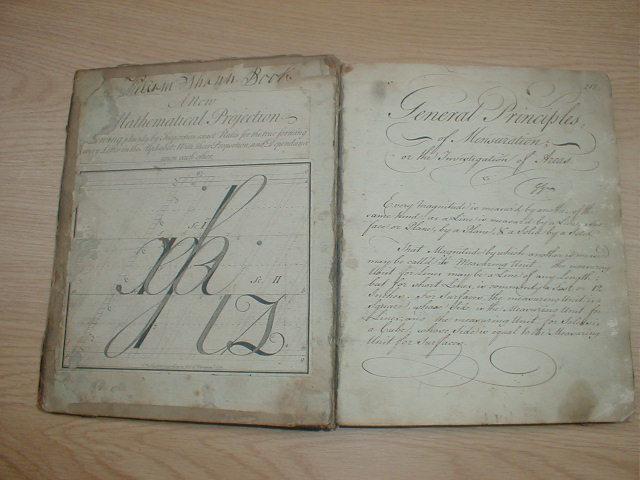 Book
A New
Mathematical Projection
Shewing plainly by Inspection exact Rules for the true forming
every Letter in the Alphabet, With their Proportion, and Dependance
upon each other.
Sc. I
Sc. II
General Principles,
of Mensuration;
or the Investigation of Areas
Every Magnitude is measur'd by another of the
same kind; as a Line is measur'd by a Line, a Sur-
face or Plane, by a Plane, & a Solid by a Solid.
That Magnitude by which another is measur'd
may be called the Measuring Unit. the measuring
Unit for Lines may be a Line of any Length;
but for short Lines, is commonly 1 Foot or 12
Inches. For Surfaces the measuring Unit is a
Square, whose Side is the Measuring Unit for
Lines; and the measuring Unit for Solids is
a Cube, whose Side is equal to the Measuring
Unit for Surfaces.